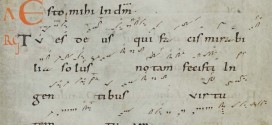 A Esto, mihi in dm̄.
RG Tu es de us qui fa cis mirabi
lia solus notam fecisti In
gen tibus virtu
tem tuam